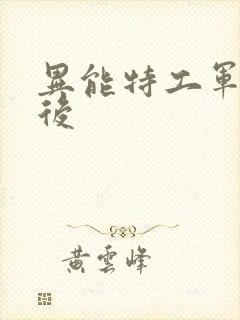 異能特工軍
後
黃雲峰